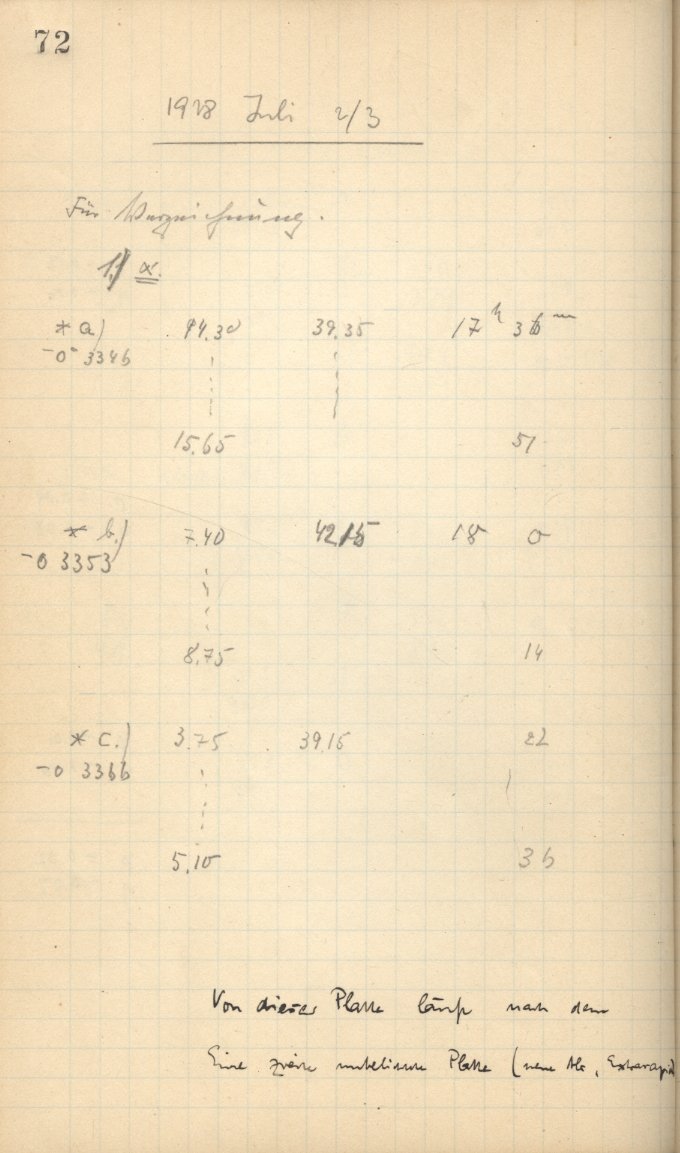 72
1928 Juli 2/3
Für Verzeichnung.
1.) α.
* a) 14.30 39.35 17 h 36 m
-0° 3346
15.65 51
* b.) 7.40 42.15 18 0
-0 3353
8.75 14
* c.) 3.75 39.15 22
-0 3366
5.10 36
Von dieser Platte nach dem
Eine zweite Platte (neue